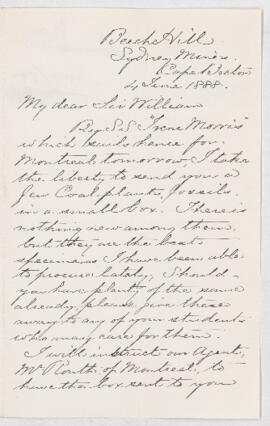 Beech Hill
Sydney Mines
Cape Breton
4 June 1888.
My dear Sir William
By S.S. "Irene Morris"
which sails hence for
Montreal tomorrow, I take
the liberty to send you a
few Coal plants, fossils
in a small box. There is
nothing new among them,
but they are the best
specimens I have been able
to procure lately, Should
you have plenty of the same
already, please give these
away to any of your students
who may care for them.
I will instruct our Agent,
Mr Routh of Montreal, to
have the box sent to you